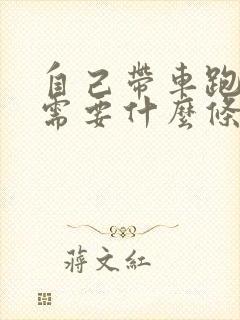 自己帶車跑
需要什麼條
蔣文紅